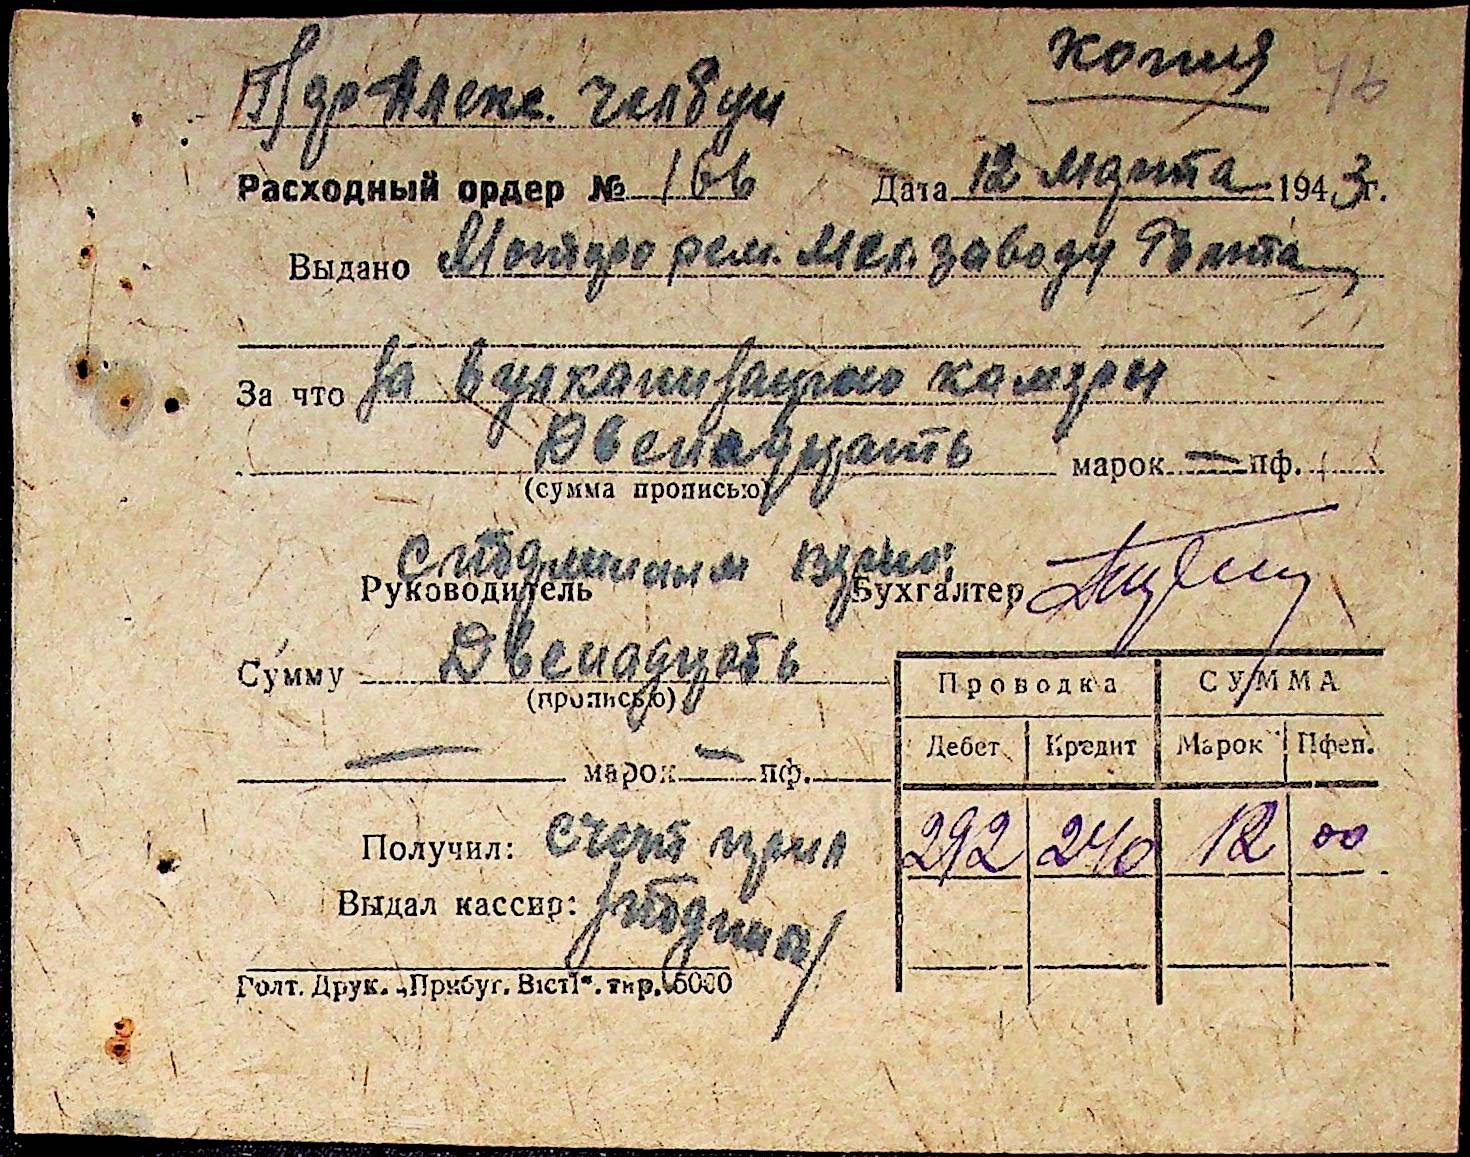 копия 46
Алекс.
Расходный ордер № 166 Дата 12 марта 1943 г.
Выдано рем. мех. заводу
За что за вулканизацию камеры
Двенадцать марок — пф.
(сумма прописью)
с подлинным верно:
Руководитель Бухгалтер
Сумму Двенадцать
(прописью)
— марок — пф.
Проводка СУММА
Дебет Кредит Марок Пфен.
292 240 12 00
Получил: счет
Выдал кассир:
Голт. Друк. „Прибуг. Вісті“. тир. 5000